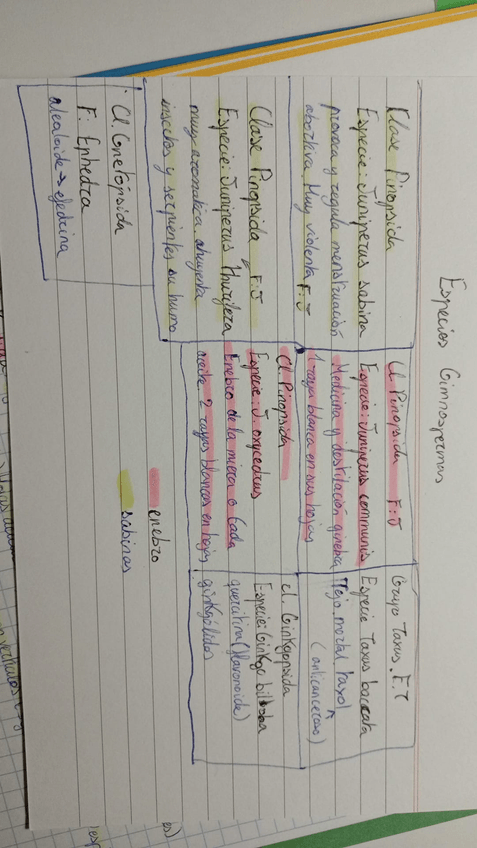 Especies Gimnospermas
Klase Pinopsida
Especie: Juniperus sabina
provoca y regula menstruación
abortiva. Muy violenta F: J
Cl. Pinopsida F: J
Especie: Juniperus communis
Medicina y destilación ginebra
1 raya blanca en sus hojas
Grupo Taxus. F. T
Especie Taxus baccata
Tejo mortal. Taxol
(anticanceroso)
Clase Pinopsida F: J
Especie: Juniperus thurifera
muy aromática ahuyenta
insectos y serpientes su humo
Cl. Pinopsida
Especie: J. oxycedrus
Enebro de la miera o Cada
aceite. 2 rayas blancas en hojas
cl. Ginkgopsida
Especie: Ginkgo biloba
quercitina (flavonoide)
ginkgólidos
Cl. Gnetópsida
F: Ephedra
alcaloide → efedrina
enebro
sabinas